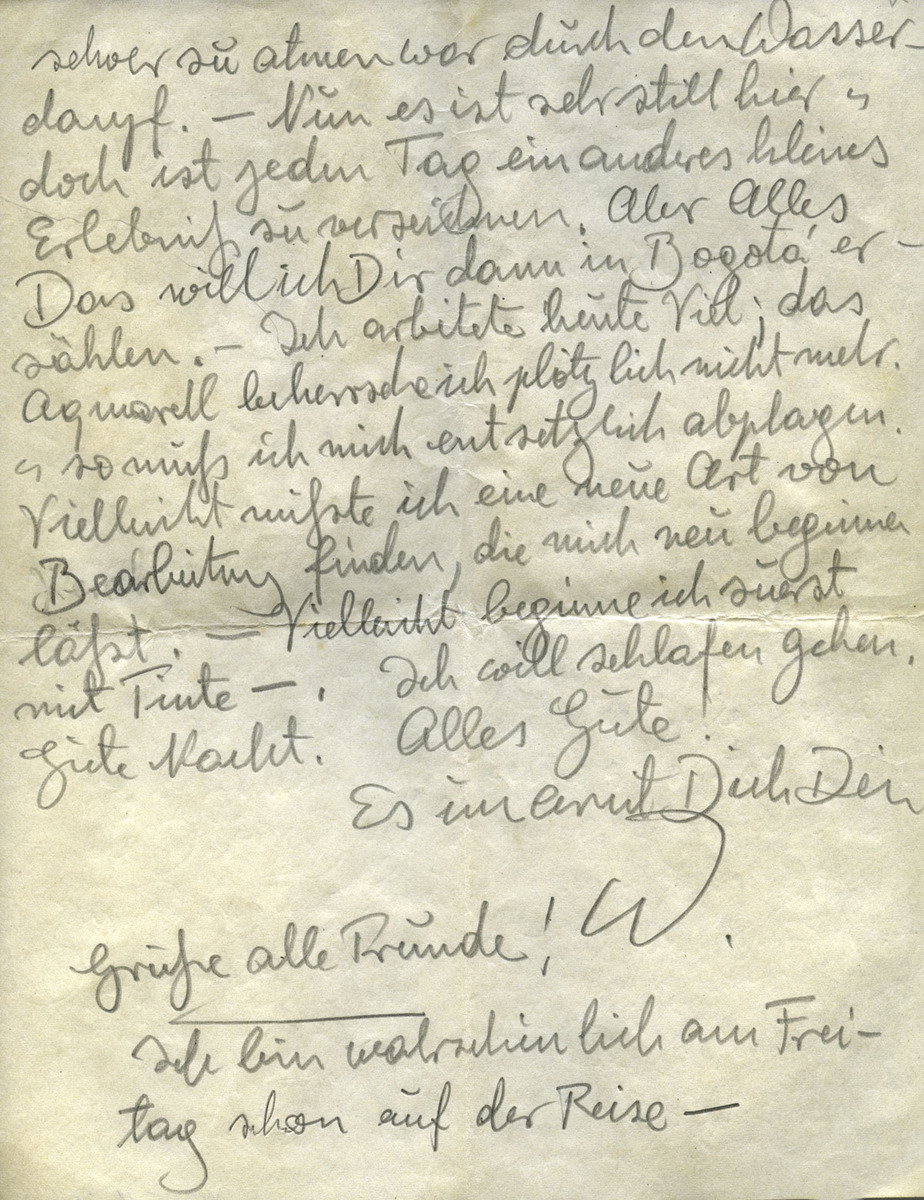 schwer zu atmen war durch den Wasser-
dampf. — Nun es ist sehr still hier u
doch ist jeden Tag ein anderes kleines
Erlebniß zu verzeichnen. Aber Alles
Das will ich Dir dann in Bogotá er-
zählen. — Ich arbeitete heute Viel; das
Aquarell beherrsche ich plötzlich nicht mehr.
u so muß ich mich entsetzlich abplagen.
Vielleicht müßte ich eine neue Art von
Bearbeitung finden, die mich neu beginnen
läßt. — Vielleicht beginne ich zuerst
mit Tinte —. Ich will schlafen gehen.
Gute Nacht. Alles Gute!
Es umarmt Dich Dein
W.
Grüße alle Freunde!
Ich bin wahrscheinlich am Frei-
tag schon auf der Reise —